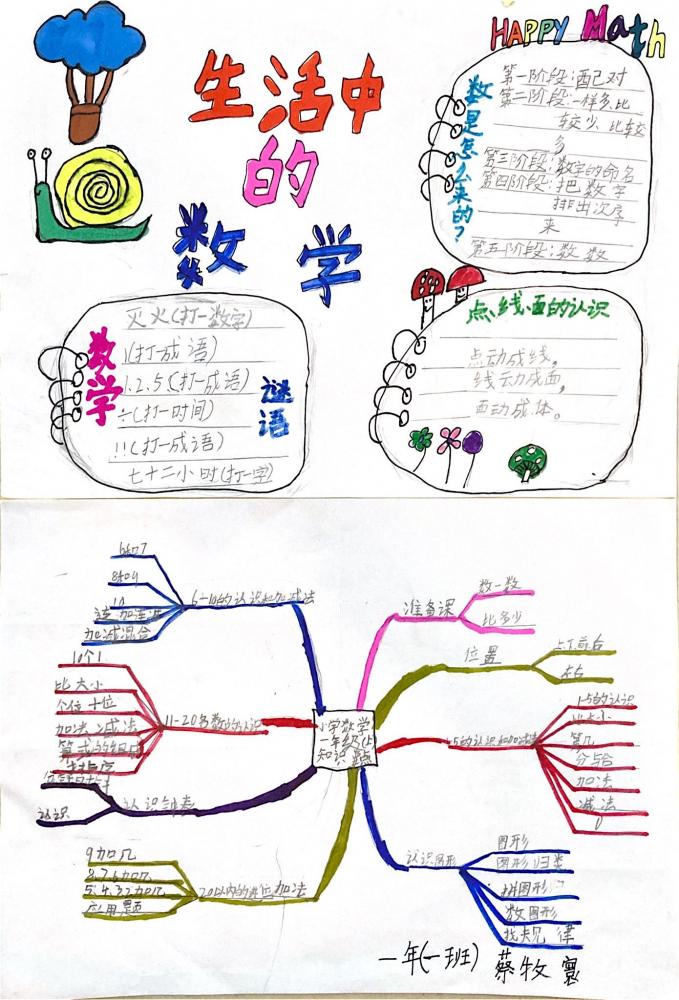 HAPPY Math
生活中
的
数学
数是怎么来的？
第一阶段：配对
第二阶段：一样多、比
较少、比较
多
第三阶段：数字的命名
第四阶段：把数字
排出次序
来
第五阶段：数数
数学
谜语
灭火(打一数字)
1(打一成语)
1.2.5(打一成语)
÷(打一时间)
!!(打一成语)
七十二小时(打一字)
点、线、面的认识
点动成线，
线动成面，
面动成体。
6和7
8和9
10
加减混合
6-10的认识和加减法
10个1
比大小
个位 十位
加法 减法
11-20各数的认识
认识
认识钟表
9加几
8.7.6加几
5.4.3.2加几
应用题
20以内的进位加法
小学数学
一年级(上)
知识
准备课
数一数
比多少
位置
上下前后
左右
1-5的认识和加减法
1-5的认识
比大小
第几
分与合
加法
减法
0
认识图形
图形
图形归类
拼图形
数图形
找规律
一年(一班) 蔡牧寰